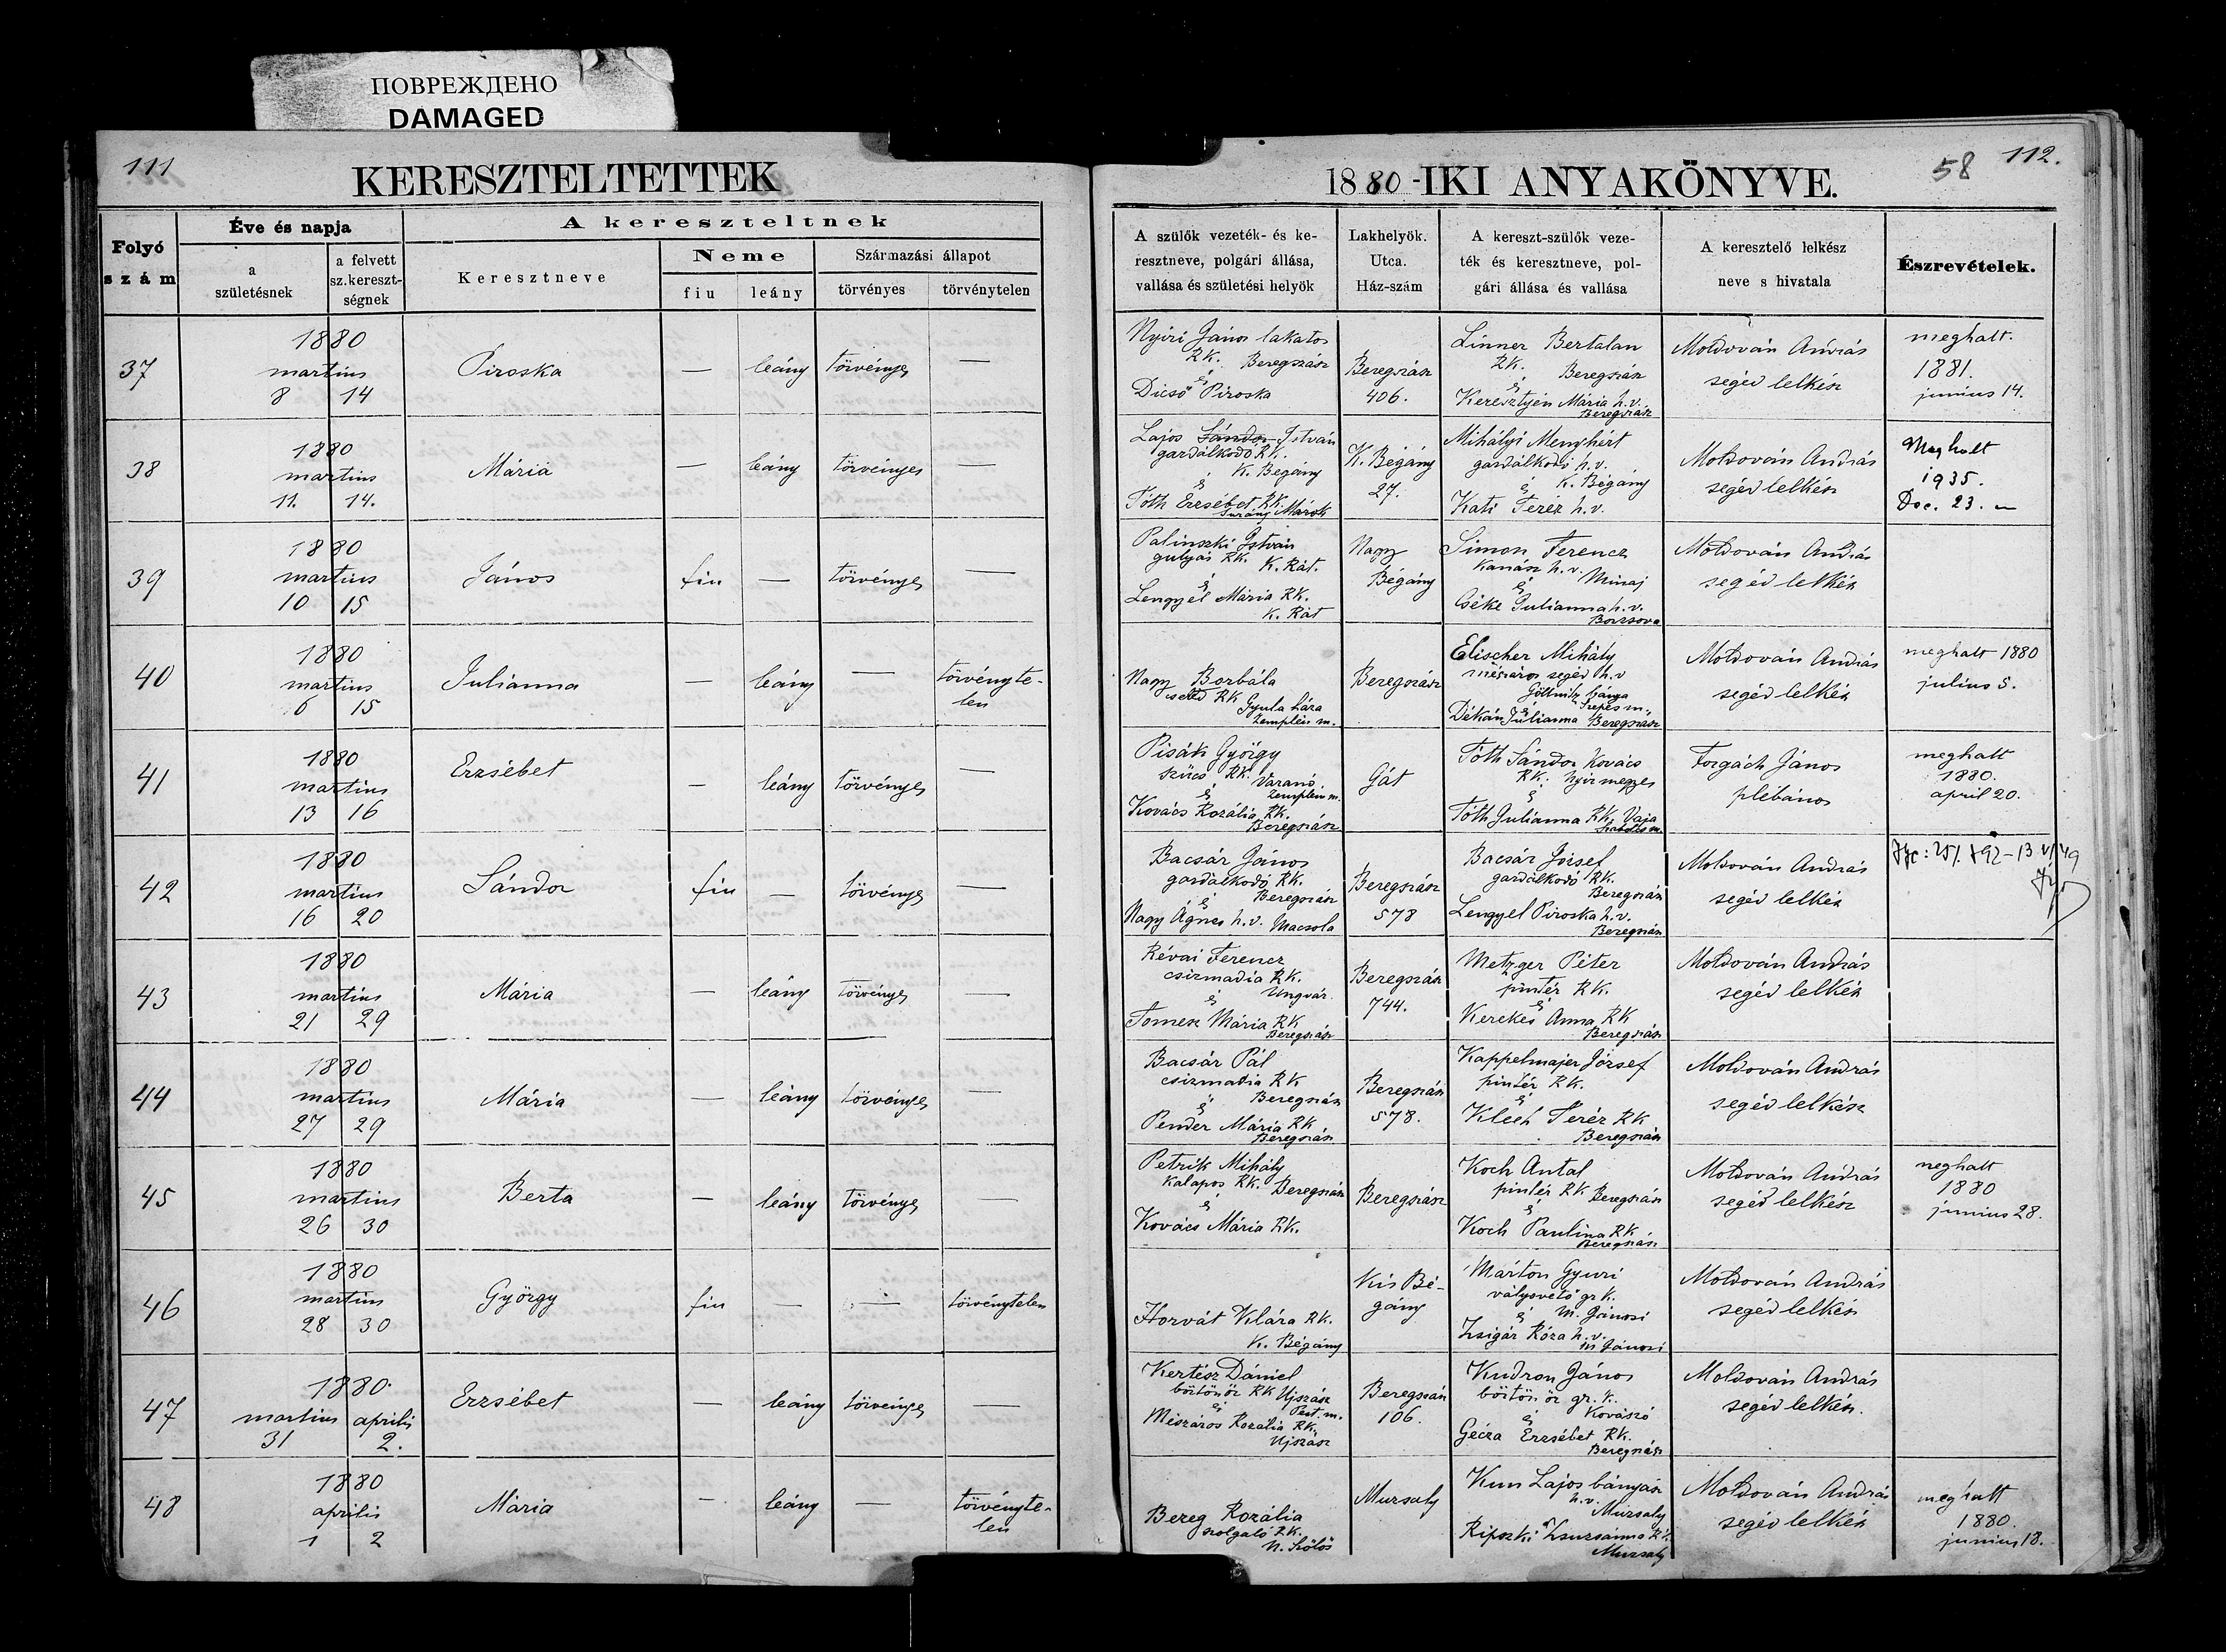 ПОВРЕЖДЕНО
DAMAGED
111
KERESZTELTETTEK
Folyó
szám
Éve és napja
a
születésnek
a felvett
sz.kereszt-
ségnek
A kereszteltnek
Keresztneve
Neme
fiu
leány
Származási állapot
törvényes
törvénytelen
1880-IKI ANYAKÖNYVE.
58
112.
A szülők vezeték- és ke-
resztneve, polgári állása,
vallása és születési helyök
Lakhelyök.
Utca.
Ház-szám
A kereszt-szülők veze-
ték és keresztneve, pol-
gári állása és vallása
A keresztelő lelkész
neve s hivatala
Észrevételek.
37
1880
martius
8 14
Piroska
—
leány
törvényes
—
Nyiri János lakatos
RK. Beregszász
és
Dicső Piroska
Beregszász
406.
Linner Bertalan
RK. Beregszász
és
Keresztyén Mária h.v.
Beregszász
Moldován András
segéd lelkész
meghalt.
1881.
junius 14.
38
1880
martius
11. 14.
Mária
—
leány
törvényes
—
Lajos Sándor István
gazdálkodó RK.
K. Bégány
és
Tóth Erzsébet RK.
Surány Márok
K. Bégány
27.
Mihályi Menyhért
gazdálkodó h.v.
és K. Bégány
Kati Teréz h.v.
Moldován András
segéd lelkész
Meghalt
1935.
Dec. 23.
39
1880
martius
10 15
János
fiu
—
törvényes
—
Palinszki István
gulyás RK. K. Rát.
és
Lengyel Mária RK.
K. Rát
Nagy
Bégány
Simon Ferencz
Kanász h.v. Minaj
és
Cséke Julianna h.v.
Borzsova
Moldován András
segéd lelkész
40
1880
martius
6 15
Julianna
—
leány
—
törvényte-
len
Nagy Borbála
cseléd RK
Gyula háza
Zemplén m.
Beregszász
Elischer Mihály
mészáros segéd h.v
Göllnitz bánya
és Szepes m.
Dékán Julianna Beregszász
Moldován András
segéd lelkész
meghalt 1880
julius 5.
41
1880
martius
13 16
Erzsébet
—
leány
törvényes
—
Pisák György
szűcs RK. Varanó
és Zemplén m.
Kovács Rozália RK.
Beregszász
Gát
Tóth Sándor Kovács
RK. Nyir megyes
és
Tóth Julianna RK. Vaja
Szabolcs m.
Forgách János
plébános
meghalt
1880.
april 20.
42
1880
martius
16 20
Sándor
fiu
—
törvényes
—
Bacsár János
gazdálkodó RK.
és Beregszász
Nagy Ágnes h.v. Macsola
Beregszász
578
Bacsár József
gazdálkodó RK.
Beregszász
Lengyel Piroska h.v.
Beregszász
Moldován András
segéd lelkész
43
1880
martius
21 29
Mária
—
leány
törvényes
—
Révai Ferencz
csizmadia RK.
és Ungvár.
Tomesz Mária RK
Beregszász
Beregszász
744.
Metzger Péter
pintér RK.
és
Kerekes Anna RK
Beregszász
Moldován András
segéd lelkész
44
1880
martius
27 29
Mária
—
leány
törvényes
—
Bacsár Pál
csizmadia RK
és Beregszász
Pender Mária RK
Beregszász
Beregszász
578.
Kappelmajer József
pintér RK.
és
Klech Teréz RK
Beregszász
Moldován András
segéd lelkész
45
1880
martius
26 30
Berta
—
leány
törvényes
—
Petrik Mihály
Kalapos RK. Beregszász
és
Kovács Mária RK.
Beregszász
Koch Antal
pintér RK Beregszász
és
Koch Paulina RK
Beregszász
Moldován András
segéd lelkész
meghalt
1880
junius 28.
46
1880
martius
28 30
György
fiu
—
—
törvénytelen
Horvát Klára RK.
K. Bégány
Kis Bé-
gány
Márton Gyuri
vályovető gr k.
és M. Jánosi
Zsigár Róza h.v.
M Jánosi
Moldován András
segéd lelkész
47
1880.
martius aprilis
31 2.
Erzsébet
—
leány
törvényes
—
Kertész Dániel
börtönőr RK Ujszász
és Pest. m.
Mészáros Rozália RK.
Ujszász
Beregszász
106.
Kudron János
börtön őr gr. k.
és Kovászó
Gécza Erzsébet RK.
Beregszász
Moldován András
segéd lelkész.
48
1880
aprilis
1 2
Mária
—
leány
—
törvényte-
len
Bereg Rozália
szolgáló RK.
N. Szőlős
Muzsaly
Kun Lajos bányász
h.v.
Muzsaly
Ripszki Zsuzsánna RK.
Muzsaly
Moldován András
segéd lelkész
meghalt
1880.
junius 18.